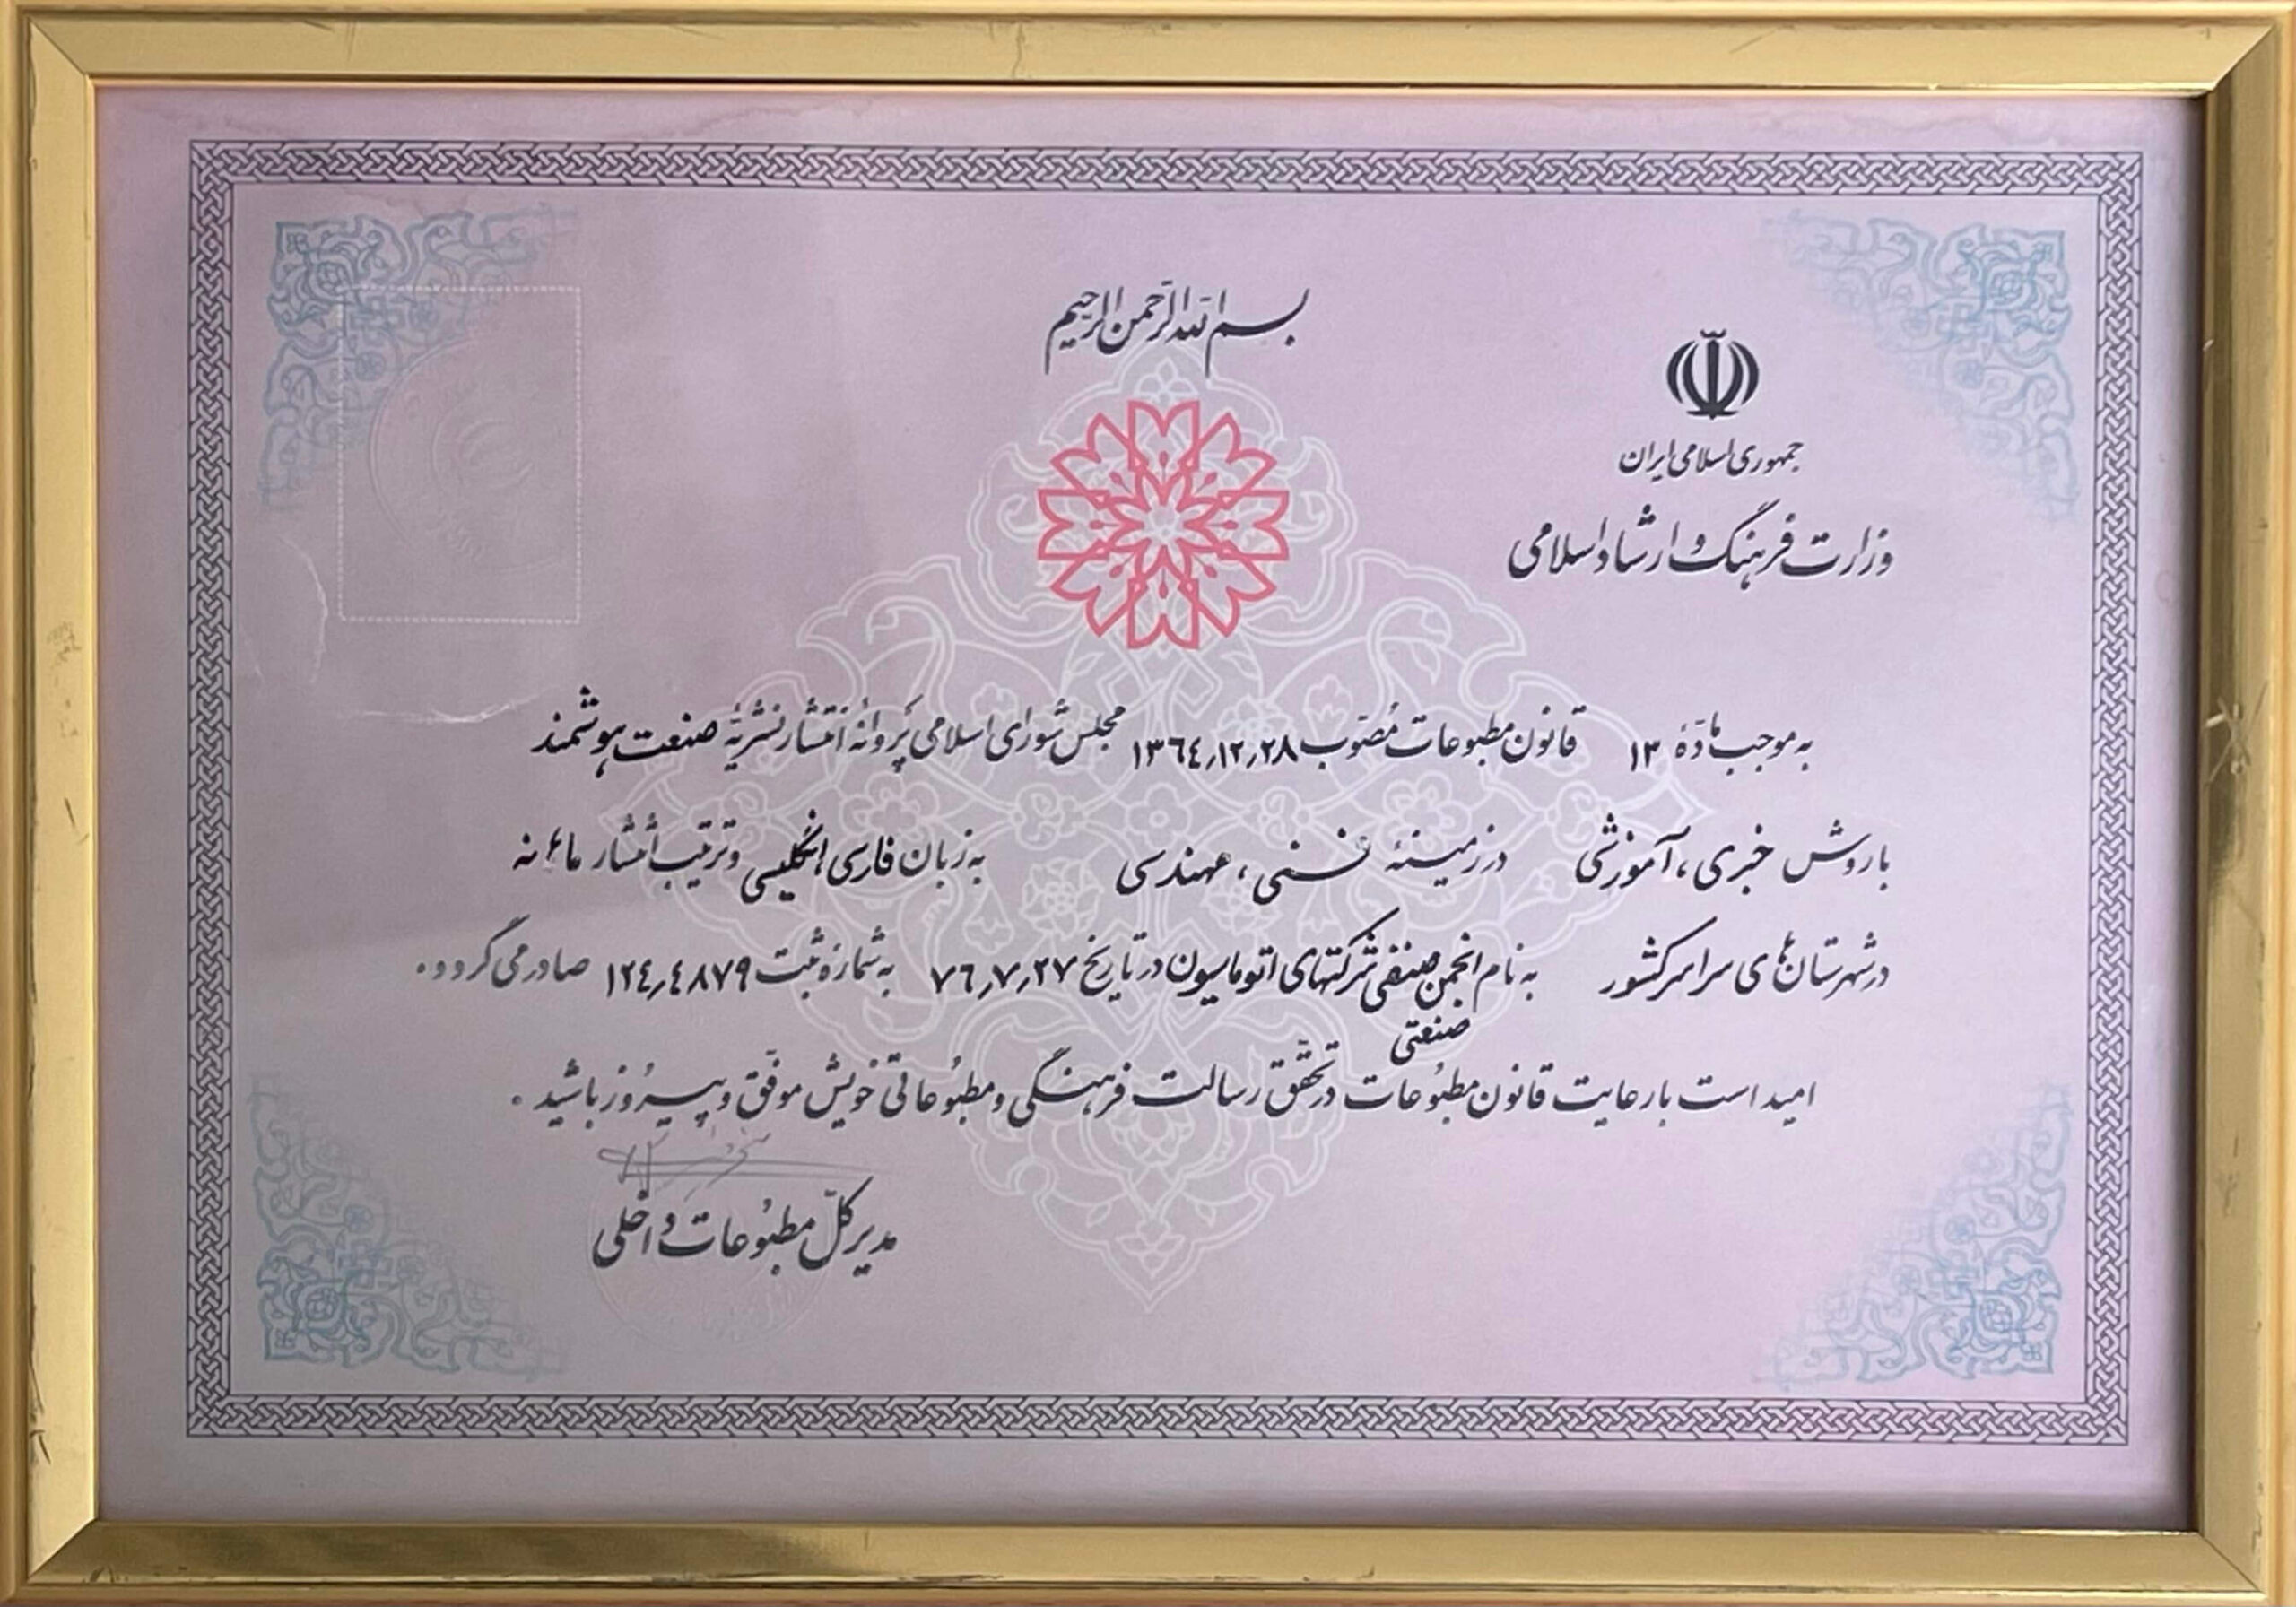 بسم الله الرحمن الرحیم
جمهوری اسلامی ایران
وزارت فرهنگ و ارشاد اسلامی
به موجب مادّهٔ ۱۳ قانون مطبوعات مُصوّب ۱۳٦٤٫۱۲٫۲۸ مجلس شورای اسلامی پروانهٔ انتشار نشریهٔ صنعت هوشمند
با روش خبری ، آموزشی در زمینهٔ فنی ، مهندسی به زبان فارسی انگلیسی و ترتیب انتشار ماهانه
در شهرستان‌های سراسر کشور به نام انجمن صنفی شرکتهای اتوماسیون در تاریخ ۷٦٫۷٫۲۷ به شمارهٔ ثبت ۱۲٤٫٤۸۷۹ صادر می گردد .
صنعتی
امید است با رعایت قانون مطبُوعات در تحقّق رسالت فرهنگی و مطبُوعاتی خویش موفّق و پیرُوز باشید .
مدیر کلّ مطبُوعات داخلی